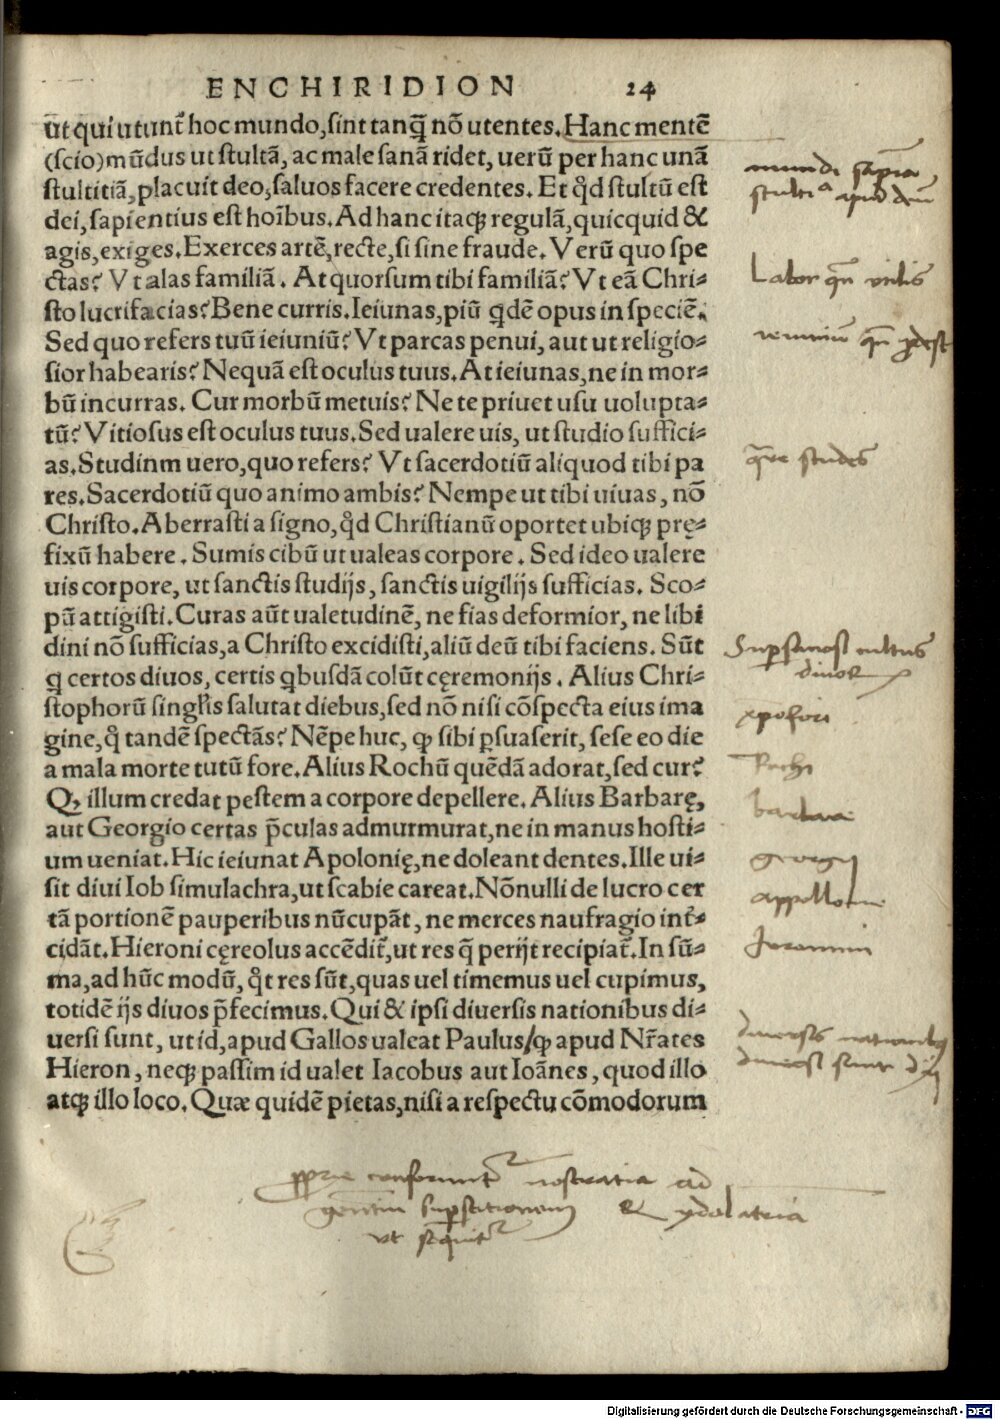 ENCHIRIDION 24
ut qui utunt᷑ hoc mundo, sint tanq̄ nō utentes. Hanc mentē
(scio) mūdus ut stultā, ac male sanā ridet, uerū per hanc unā
stultitiā, placuit deo, saluos facere credentes. Et qd̛ stultū est
dei, sapientius est hoībus. Ad hanc itaqꝫ regulā, quicquid &
agis, exiges. Exerces artē, recte, si sine fraude. Verū quo spe
ctas? Vt alas familiā. At quorsum tibi familiā? Vt eā Chri-
sto lucrifacias? Bene curris. Ieiunas, piū qdē opus in speciē.
Sed quo refers tuū ieiuniū? Vt parcas penui, aut ut religio-
sior habearis? Nequā est oculus tuus. At ieiunas, ne in mor-
bū incurras. Cur morbū metuis? Ne te priuet usu uolupta-
tū? Vitiosus est oculus tuus. Sed ualere uis, ut studio suffici-
as. Studinm uero, quo refers? Vt sacerdotiū aliquod tibi pa
res. Sacerdotiū quo animo ambis? Nempe ut tibi uiuas, nō
Christo. Aberrasti a signo, qd̛ Christianū oportet ubiqꝫ prę-
fixū habere. Sumis cibū ut ualeas corpore. Sed ideo ualere
uis corpore, ut sanctis studijs, sanctis uigilijs sufficias. Sco-
pū attigisti. Curas aūt ualetudinē, ne fias deformior, ne libi
dini nō sufficias, a Christo excidisti, aliū deū tibi faciens. Sūt
q certos diuos, certis qbusdā colūt cęremonijs. Alius Chri-
stophorū singlis salutat diebus, sed nō nisi cōspecta eius ima
gine, q̊ tandē spectās? Nēpe huc, ꝙ sibi ꝑsuaserit, sese eo die
a mala morte tutū fore. Alius Rochū quēdā adorat, sed cur?
Qꝫ illum credat pestem a corpore depellere. Alius Barbarę,
aut Georgio certas p̄culas admurmurat, ne in manus hosti-
um ueniat. Hic ieiunat Apolonię, ne doleant dentes. Ille ui-
sit diui Iob simulachra, ut scabie careat. Nōnulli de lucro cer
tā portionē pauperibus nūcupāt, ne merces naufragio int᷑-
cidāt. Hieroni cęreolus accēdit᷑, ut res q̄ perijt recipiat᷑. In sū-
ma, ad hūc modū, q̊t res sūt, quas uel timemus uel cupimus,
totidē ijs diuos p̄fecimus. Qui & ipsi diuersis nationibus di-
uersi sunt, ut id, apud Gallos ualeat Paulus/ꝙ apud Nr̄ates
Hieron, neqꝫ passim id ualet Iacobus aut Ioānes, quod illo
atqꝫ illo loco. Quæ quidē pietas, nisi a respectu cōmodorum
mundi sapīa
stulticia apud deū
Labor qn̄ utilis
ieiuniū qn̄
quare studes
Supersticiosi cultus
diuoꝝ
xpofori
Rochi
barbare
georgij
appollonie
Jeronimi
diuersis nationibꝫ
diuersi sunt dij
proprie conformit᷑ nostratia ad
gentiū superstitionem & ydolatria
ut sequit᷑
Digitalisierung gefördert durch die Deutsche Forschungsgemeinschaft - DFG